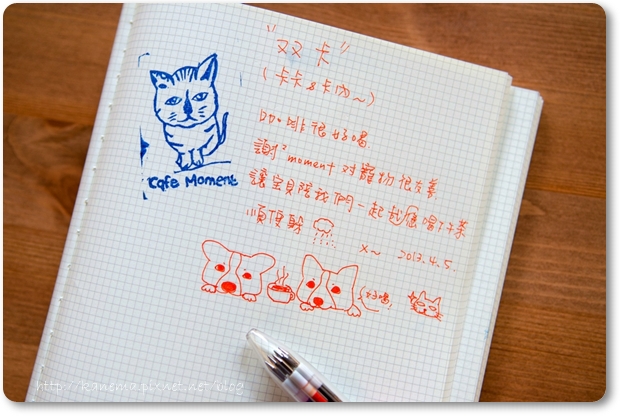 "双卡"
(卡卡&卡内~)
Cafe Moment
咖啡很好喝
謝謝 moment 对寵物很友善
讓宝貝陪我們一起 喝下午茶
順便躲
x~ 2013.4.5.
好喝!
kanema.pixnet.net/blog